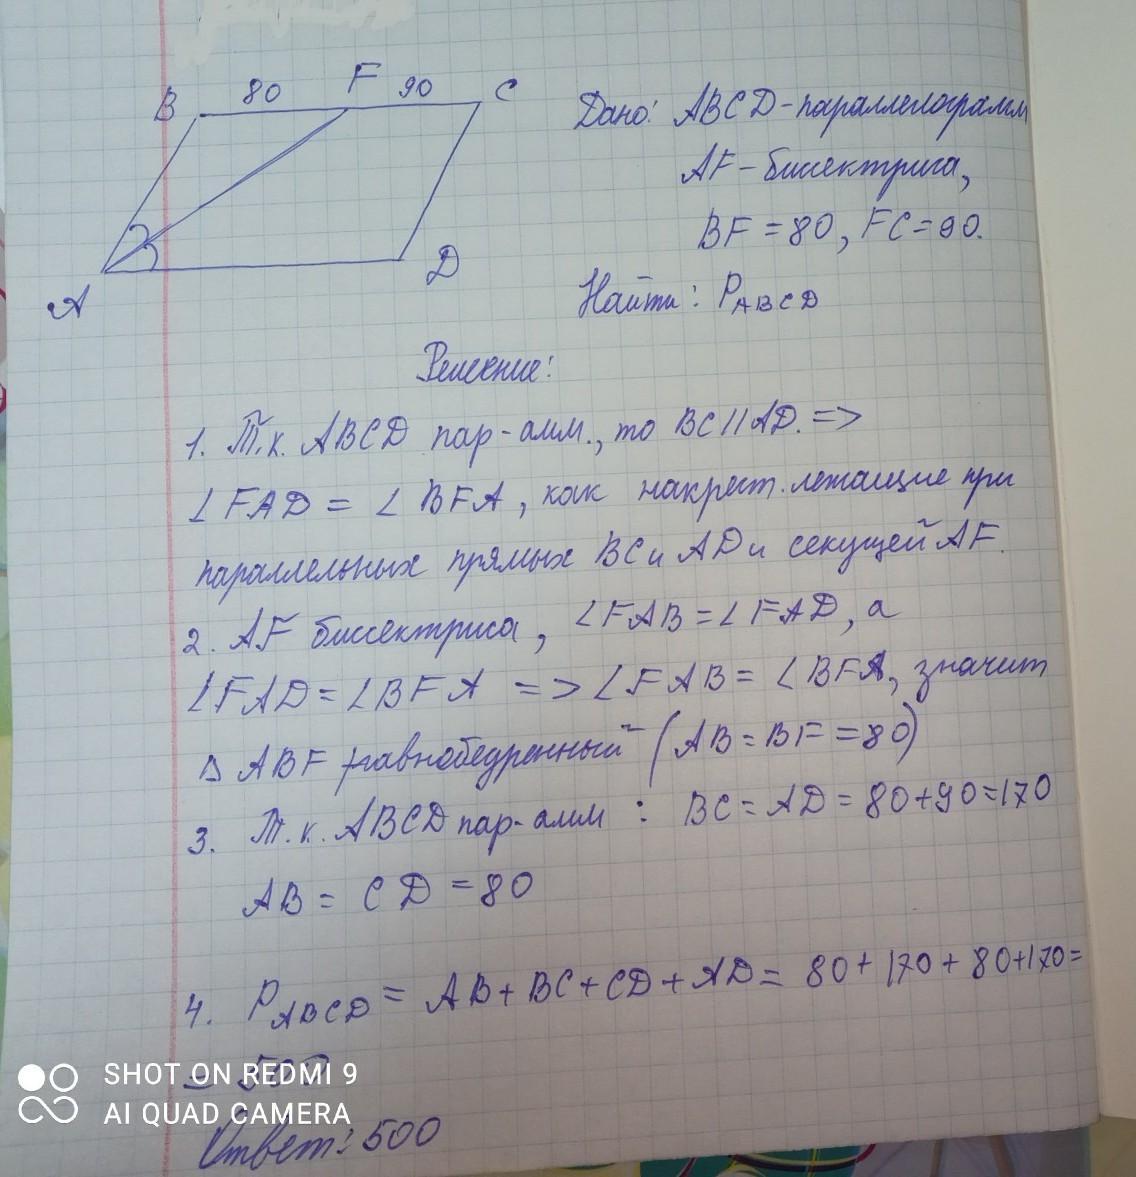 B 80 F 90 C
A D
Дано: ABCD-параллелограмм
AF-биссектриса,
BF=80, FC=90.
Найти: PABCD
Решение:
1. Т.к. ABCD пар-амм., то BC||AD. =>
∠FAD = ∠BFA, как накрест. лежащие при
параллельных прямых BC и AD и секущей AF.
2. AF биссектриса, ∠FAB=∠FAD, а
∠FAD=∠BFA => ∠FAB=∠BFA, значит
△ABF равнобедренный (AB=BF=80)
3. Т.к. ABCD пар-амм : BC=AD=80+90=170
AB = CD =80
4. PABCD = AB+BC+CD+AD= 80+170+80+170=
= 500
Ответ: 500
SHOT ON REDMI 9
AI QUAD CAMERA